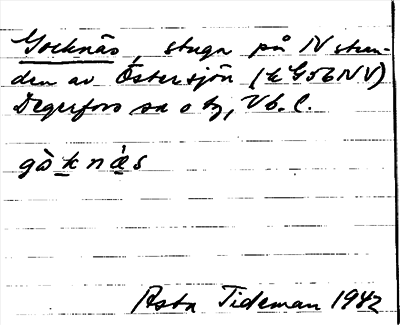 Gocknäs, stuga på N stran-
den av Östersjön (k G56NV)
Degerfors sn o by, Vb. l.
gòknä̀s
Asta Tideman 1942